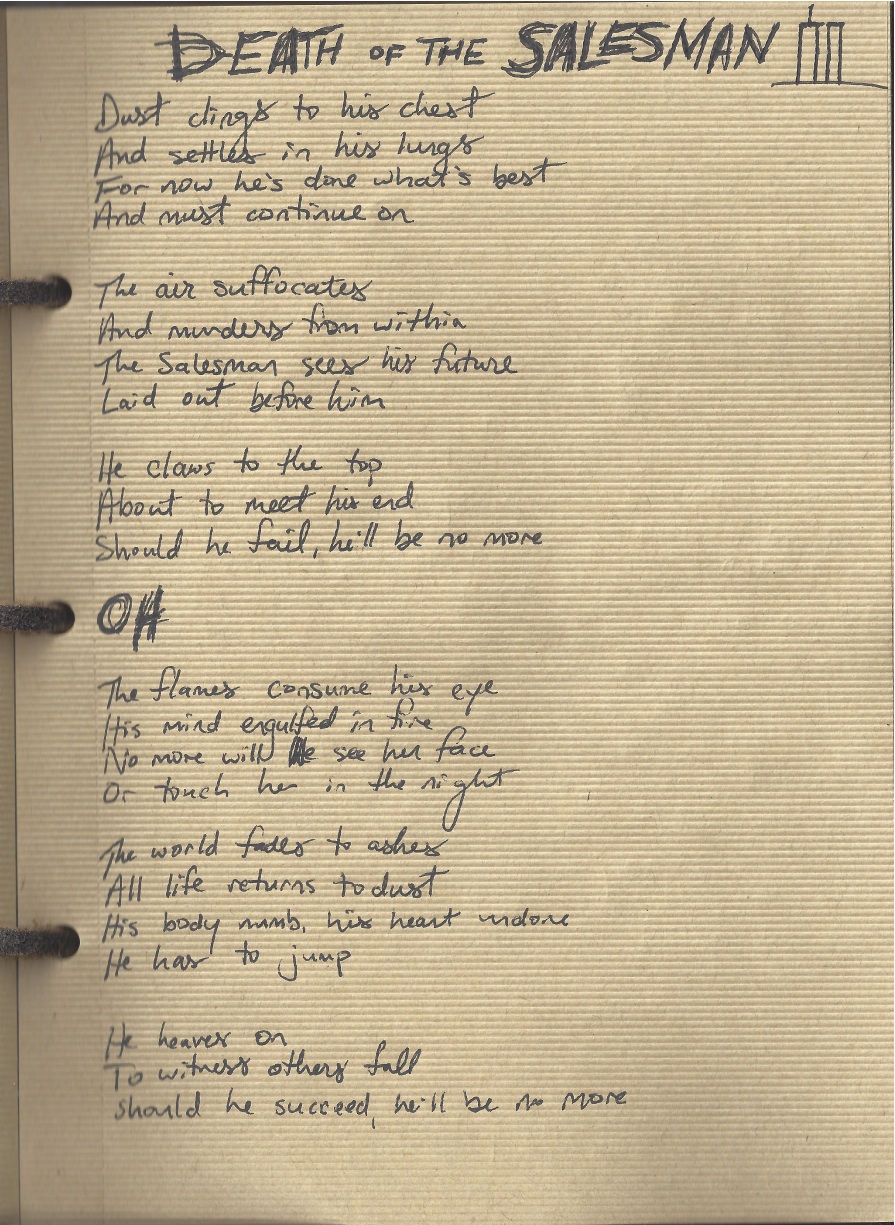 DEATH OF THE SALESMAN
Dust clings to his chest
And settles in his lungs
For now he's done what's best
And must continue on
The air suffocates
And murders from within
The Salesman sees his future
Laid out before him
He claws to the top
About to meet his end
Should he fail, he'll be no more
OH
The flames consume his eye
His mind engulfed in fire
No more will he see her face
Or touch her in the night
The world fades to ashes
All life returns to dust
His body numb, his heart undone
He has to jump
He heaves on
To witness others fall
Should he succeed, he'll be no more